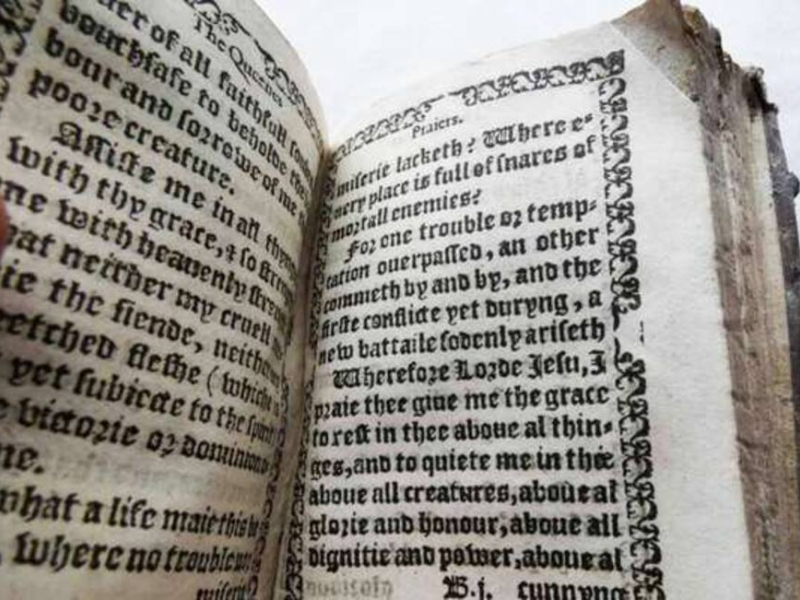 The Queenes
of all faithfull
bouchsafe to beholde the
bour and sorrowe of me
poore creature.
Assiste me in all
with thy grace, & so
me with heauenly
neither my cruell
the fiende,
fleshe (whiche
yet subiecte to the spirit
victorie or
me.
what a life maie this be
where no trouble
miserie
Praiers.
miserie lacketh? Where e-
uery place is full of snares of
mortall enemies?
For one trouble or temp-
tation ouerpassed, an other
commeth by and by, and the
firste conflicte yet duryng, a
new battaile sodenly ariseth
Wherefore Lorde Jesu, I
praie thee giue me the grace
to rest in thee aboue al thin-
ges, and to quiete me in thee
aboue all creatures, aboue al
glorie and honour, aboue all
dignitie and power, aboue al
B.j. cunnyng